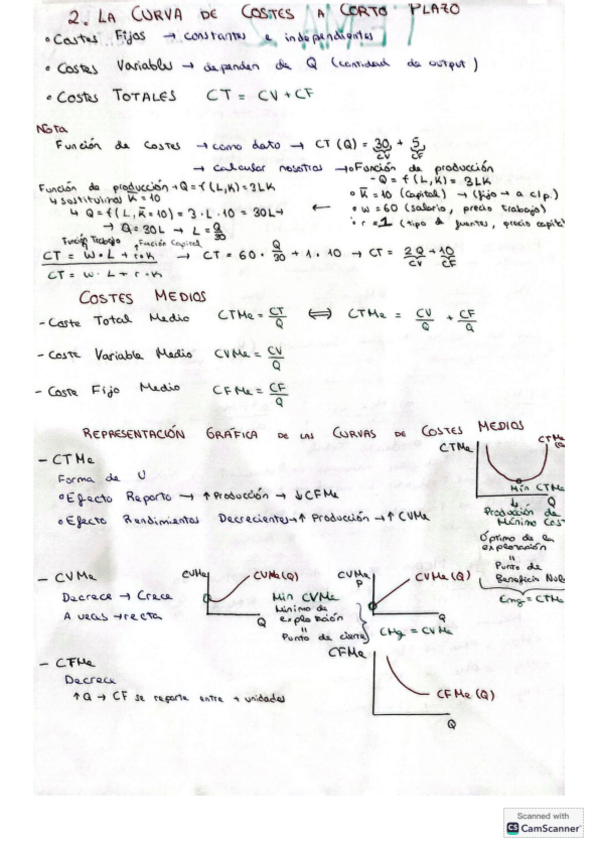 2. LA CURVA DE COSTES A CORTO PLAZO
• Costes Fijos → constantes e independientes
• Costes Variables → dependen de Q (cantidad de output)
• Costes TOTALES CT = CV + CF
Nota
Función de Costes → como dato → CT (Q) = 30 + 5
CV CF
→ calcular nosotros → Función de producción
- Q = f (L, K) = 3LK
Función de producción → Q = f (L, K) = 3LK
↳ sustituimos K̄ = 10
• K̄ = 10 (capital) → (fijo → a c/p.)
↳ Q = f (L, K̄ = 10) = 3 · L · 10 = 30L →
← • w = 60 (salario, precio trabajo)
→ Q = 30L → L = Q/30
• r = 1 (tipo de
precio
Función Trabajo Función Capital
CT = W · L + r · K → CT = 60 · Q/30 + 1 · 10 → CT = 2Q + 10
CV CF
CT = W · L + r · K
COSTES MEDIOS
- Coste Total Medio CTMe = CT/Q ⟺ CTMe = CV/Q + CF/Q
- Coste Variable Medio CVMe = CV/Q
- Coste Fijo Medio CFMe = CF/Q
REPRESENTACIÓN GRÁFICA DE LAS CURVAS DE COSTES MEDIOS
- CTMe
CTMe
Forma de U
Min CTMe
Q
• Efecto Reparto → ↑ Producción → ↓ CFMe
Producción de
Mínimo
• Efecto Rendimientos Decrecientes → ↑ Producción → ↑ CVMe
Óptimo de la
explotación
"
Punto de
Beneficio
= CTMe
- CVMe
CVMe CVMe (Q)
CVMe P CVMe (Q)
Decrece → Crece
Min CVMe
A veces → recta
Q
Mínimo de
explotación
"
Punto de cierre
Q
CMg = CVMe
- CFMe
CFMe
Decrece
↑ Q → CF se reparte entre + unidades
CFMe (Q)
Q
Scanned with
CS CamScanner